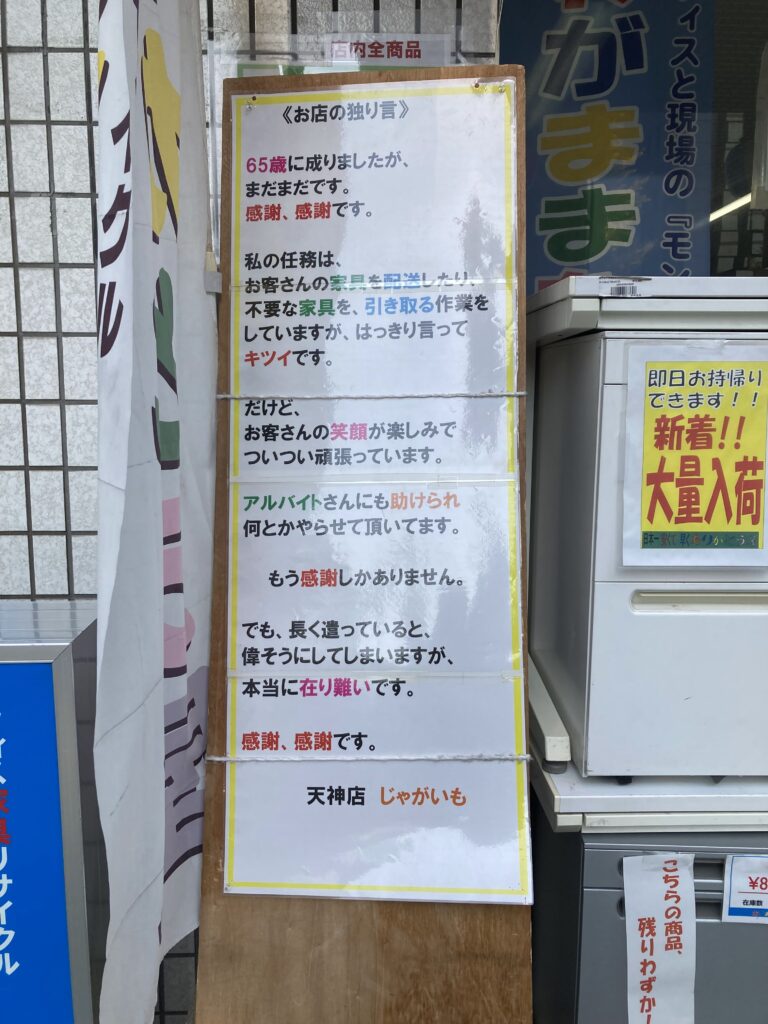 店内全商品
《お店の独り言》
65歳に成りましたが、
まだまだです。
感謝、感謝です。
私の任務は、
お客さんの家具を配送したり、
不要な家具を、引き取る作業を
していますが、はっきり言って
キツイです。
だけど、
お客さんの笑顔が楽しみで
ついつい頑張っています。
アルバイトさんにも助けられ
何とかやらせて頂いてます。
もう感謝しかありません。
でも、長く遣っていると、
偉そうにしてしまいますが、
本当に在り難いです。
感謝、感謝です。
天神店 じゃがいも
がまま
ィスと現場の『モン
即日お持帰り
できます！！
新着!!
大量入荷
日本一
こちらの商品、
残りわずか！
¥8
在庫数
イクル
ィス家具リサイクル